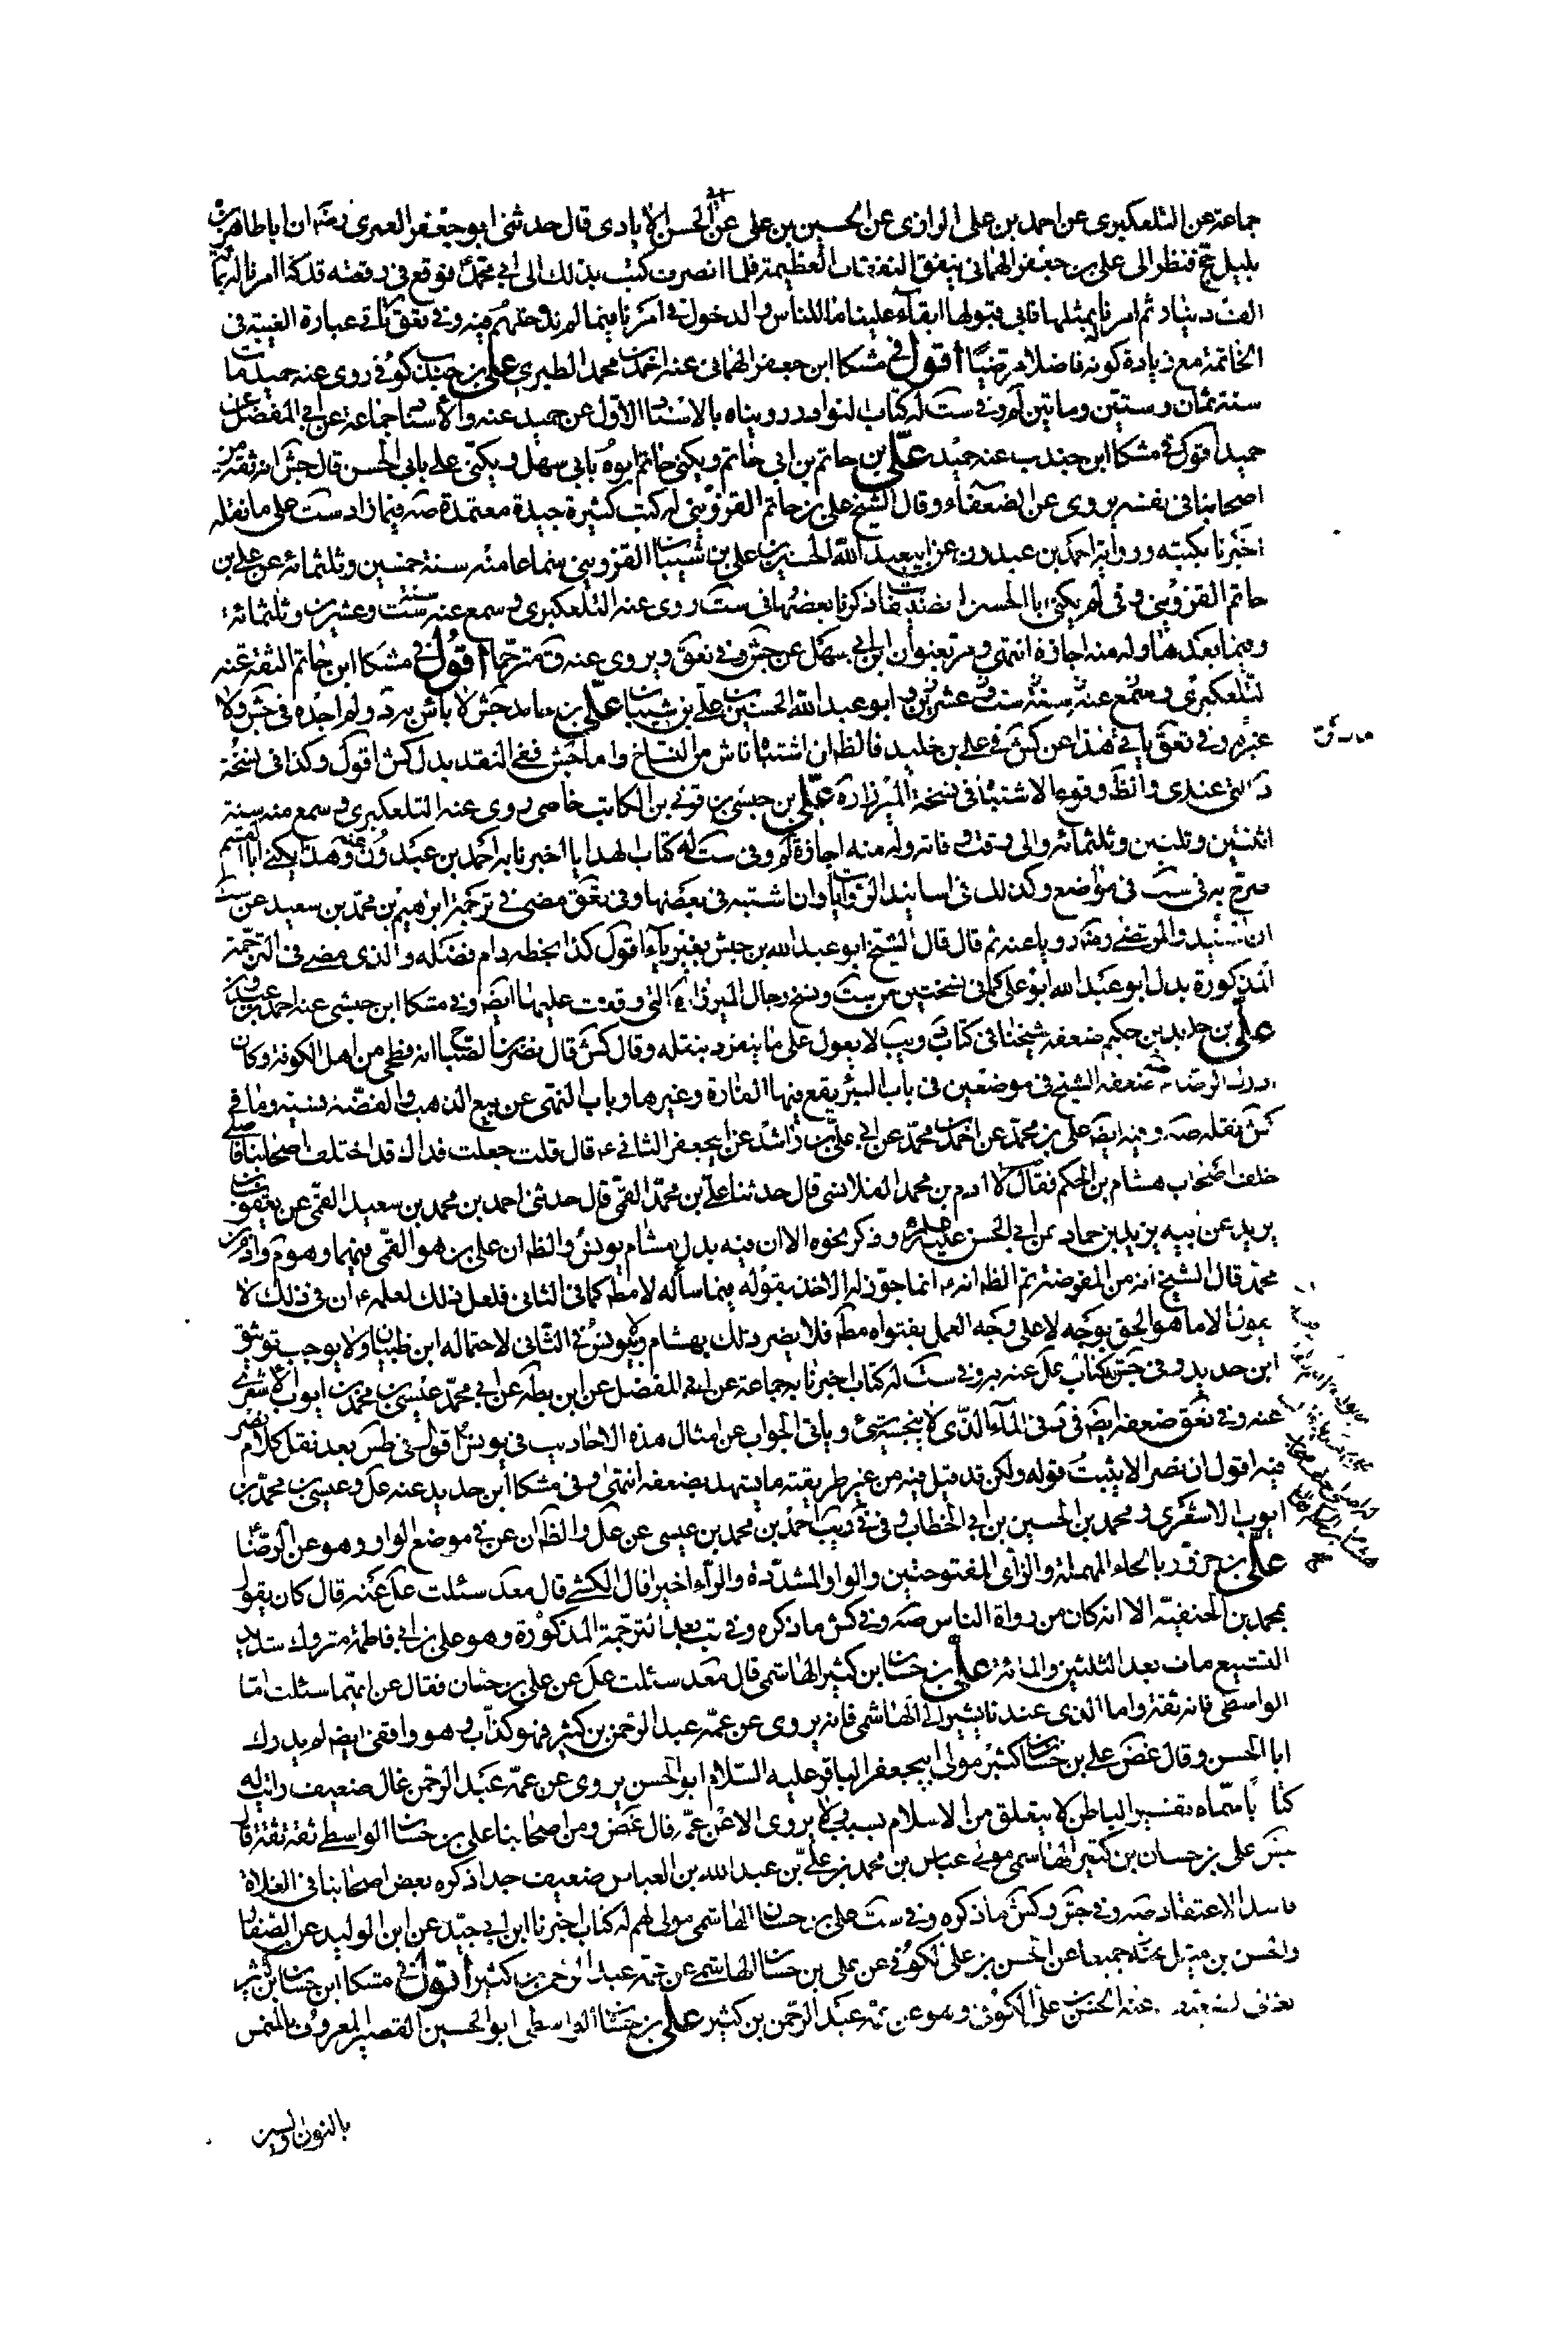 جماعة عن التلعكبرى عن احمد بن على الرازى عن الحسين بن على عن ابى الحسن الايادى قال حدثنى ابو جعفر العمرى رضه ان ابا طاهر بن
بليل حج فنظر الى على بن جعفر الهمانى ينفق النفقات العظيمة فلما انصرف كتب بذلك الى ابى محمد ع فوقع فى رقعته قد كنا امرنا له بمائة
الف دينار ثم امرنا بمثلها فابى قبولها ابقاء علينا ما للناس والدخول فى امرنا فيما لم ندخلهم فيه وفى تعق ياتى عبارة الغيبة فى
الخاتمة مع زيادة كونه فاضلا مرضيا اقول فى مشكا ابن جعفر الهمانى عنه احمد بن محمد الطبرى على بن جندب كوفى روى عنه حميد مات
سنة ثمان وستين وماتين لم وفى ست له كتاب النوادر رويناه بالاسناد الاول عن حميد عنه والاسناد جماعة عن ابى المفضل عن
حميد اقول فى مشكا ابن جندب عنه حميد على بن حاتم بن ابى حاتم ويكنى حاتم ابوه بابى سهل ويكنى على بابى الحسن قال جش انه ثقة من
اصحابنا فى نفسه يروى عن الضعفاء وقال الشيخ على بن حاتم القزوينى له كتب كثيرة جيدة معتمدة صه فيما زاد ست على ما نقله
اخبرنا بكتبه ورواياته احمد بن عبدون عن ابيعبد الله الحسين بن على بن شيبان القزوينى سماعا منه سنة خمسين وثلثمائة عن على بن
حاتم القزوينى وفى لم يكنى ابا الحسن له تصنيفات ذكرنا بعضها فى ست روى عنه التلعكبرى وسمع عنه سنة ست وعشرين وثلثمائة
وفيما بعدها وله منه اجازة انتهى ومر بعنوان ابن ابى سهل عن جش وفى تعق ويروى عنه ق مترحما اقول فى مشكا ابن حاتم الثقة عنه
التلعكبرى وسمع عنه سنة ست وعشرين و ابو عبد الله الحسين بن على بن شيبان على بن حامد جش لا باس به د ولم اجده فى جش ولا
غيره وفى تعق ياتى هذا عن كش فى على بن خليد فالظ ان اشتباه ناش من النساخ واما جش ففى النقد بدل كش اقول وكذا فى نسخة
د التى عندى والظ وقوع الاشتباه فى نسخة الميرزا ره على بن حبشى بن قونى بن الكاتب خاصى روى عنه التلعكبرى وسمع منه سنة
اثنتين وثلثين وثلثمائة والى وقت وفاته وله منه اجازة لم وفى ست له كتاب الهدايا اخبرنا به احمد بن عبدون عنه وهذا يكنى ابا القسم
صرح به فى ست فى مواضع وكذلك فى اسانيد الروايات وان اشتبه فى بعضها وفى تعق مضى فى ترجمة ابرهيم بن محمد بن سعيد عن ست
ان المفيد والمرتضى رضه رويا عنه ثم قال قال الشيخ ابو عبد الله بن حبش بغير ياء اقول كذا بخطه دام فضله والذى مضى فى الترجمة
المذكورة بدل ابو عبد الله ابو على كما فى نسختين من ست ونسخ رجال الميرزا ره التى وقفت عليها ايضه وفى مشكا ابن حبشى عنه احمد بن عبدون
على بن حديد بن حكيم ضعفه شيخنا فى كتابى ويب لا يعول على ما ينفرد بنقله وقال كش قال نصر بن الصباح انه فطحى من اهل الكوفة وكان
ادرك الرضا ع صه ضعفه الشيخ فى موضعين فى باب البئر يقع فيها الفارة وغيرها وباب النهى عن بيع الذهب والفضة نسية وما فى
كش نقله صه وفيه ايضه على بن محمد عن احمد بن محمد عن ابى على بن راشد عن ابيجعفر الثانى ع قال قلت جعلت فداك قد اختلف اصحابنا فاصلى
خلف اصحاب هشام بن الحكم فقال لا ادم بن محمد القلانسى قال حدثنا على بن محمد القمى قال حدثنى احمد بن محمد بن سعيد القمى عن يعقوب بن
يزيد عن ابيه يزيد بن حماد عن ابى الحسن ع وذكر نحوه الا ان فيه بدل هشام يونس والظ ان على بن هو القمى فيهما وهو م وادم بن
محمد قال الشيخ انه من المفوضة ثم الظ انه ع انما جوز له الاخذ بقوله فيما سأله لا مط كما فى الثانى فلعل ذلك لعلمه ع ان فى ذلك لا
يقول الا ما هو الحق بوجه لا على وجه العمل بفتواه مط فلا يضر ذلك بهشام ولا يونس فى الثانى لاحتماله ابن ظبيان ولا يوجب توثيق
ابن حديد وفى جش كتاب عل عنه به وفى ست له كتاب اخبرنا به جماعة عن ابى المفضل عن ابن بطة عن ابى محمد عيسى بن محمد بن ايوب الاشعرى
عنه وفى تعق ضعفه ايضه فى ئه فى الماء الذى لا ينجسه شئ وياتى الجواب عن امثال هذه الاحاديث فى يونس اقول فى طس بعد نقل كلام نصر
فيه اقول ان نصرا لا يثبت قوله ولكن قد قيل فيه من غير طريقته ما يشهد بضعفه انتهى وفى مشكا ابن حديد عنه عل وعيسى بن محمد بن
ايوب الاشعرى ومحمد بن الحسين بن ابى الخطاب وفى فى ويب احمد بن محمد بن عيسى عن عل والظ ان عن فى موضع الواو وهو عن الرضا ع
على بن حزور بالحاء المهملة والزاى المفتوحتين والواو المشددة والراء اخيرا قال الكشى قال معد سئلت عل عنه قال كان يقول
بمحمد بن الحنفية الا انه كان من رواة الناس صه وفى كش ما ذكره وفى تب بعد الترجمة المذكورة وهو على بن ابى فاطمة متروك شديد
التشيع مات بعد الثلثين والمائة على بن حسان ابن كثير الهاشمى قال معد سئلت عل عن على بن حسان فقال عن ايهما سئلت اما
الواسطى فانه ثقة واما الذى عندنا يشير الى الهاشمى فانه يروى عن عمه عبد الرحمن بن كثير فهو كذاب وهو واقفى ايضه لم يدرك
ابا الحسن وقال غض على بن حسان بن كثير مولى ابيجعفر الباقر عليه السلام ابو الحسن يروى عن عمه عبد الرحمن غال ضعيف رايت له
كتابا سماه تفسير الباطن لا يتعلق من الاسلام بسبب ولا يروى الا عن عمه قال غض ومن اصحابنا على بن حسان الواسطى ثقة ثقة قال
جش على بن حسان بن كثير الهاشمى مولى عباس بن محمد بن على بن عبد الله بن العباس ضعيف جدا ذكره بعض اصحابنا فى الغلاة
فاسد الاعتقاد صه وفى جش وكش ما ذكره وفى ست على بن حسان الهاشمى مولى لهم له كتاب اخبرنا ابن ابى جيد عن ابن الوليد عن الصفار
والحسن بن متيل جميعا عن الحسن بن على الكوفى عن على بن حسان الهاشمى عن عمه عبد الرحمن بن كثير اقول فى مشكا ابن حسان بن كثير
عنه الحسن بن على الكوفى وهو عن عمه عبد الرحمن بن كثير على بن حسان الواسطى ابو الحسين القصير المعروف بالمنمس
بالنون والسين